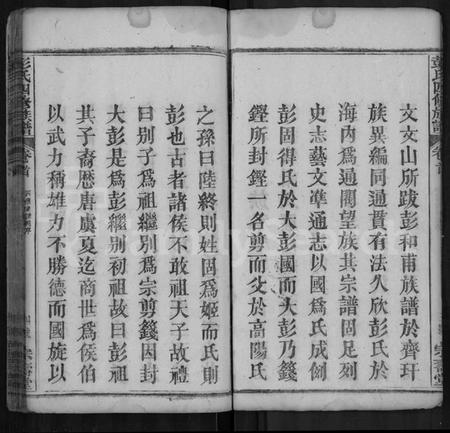 文文山所跋彭和甫族譜於齊玕
族異編同通貫有法久欣彭氏於
海內為通閥望族其宗譜固足列
史志藝文準通志以國爲氏成例
彭固得氏於大彭國而大彭乃籛
鏗所封鏗一名剪而爻於高陽氏
之孫曰陸終則姓固爲姬而氏則
彭也古者諸侯不敢祖天子故禮
曰別子爲祖繼別爲宗剪籛因封
大彭是爲彭繼別初祖故曰彭祖
其子裔歴唐虞夏迄商世爲侯伯
以武力稱雄力不勝德而國旋以
彭氏四修族譜
卷首
彭氏四修族譜
卷首